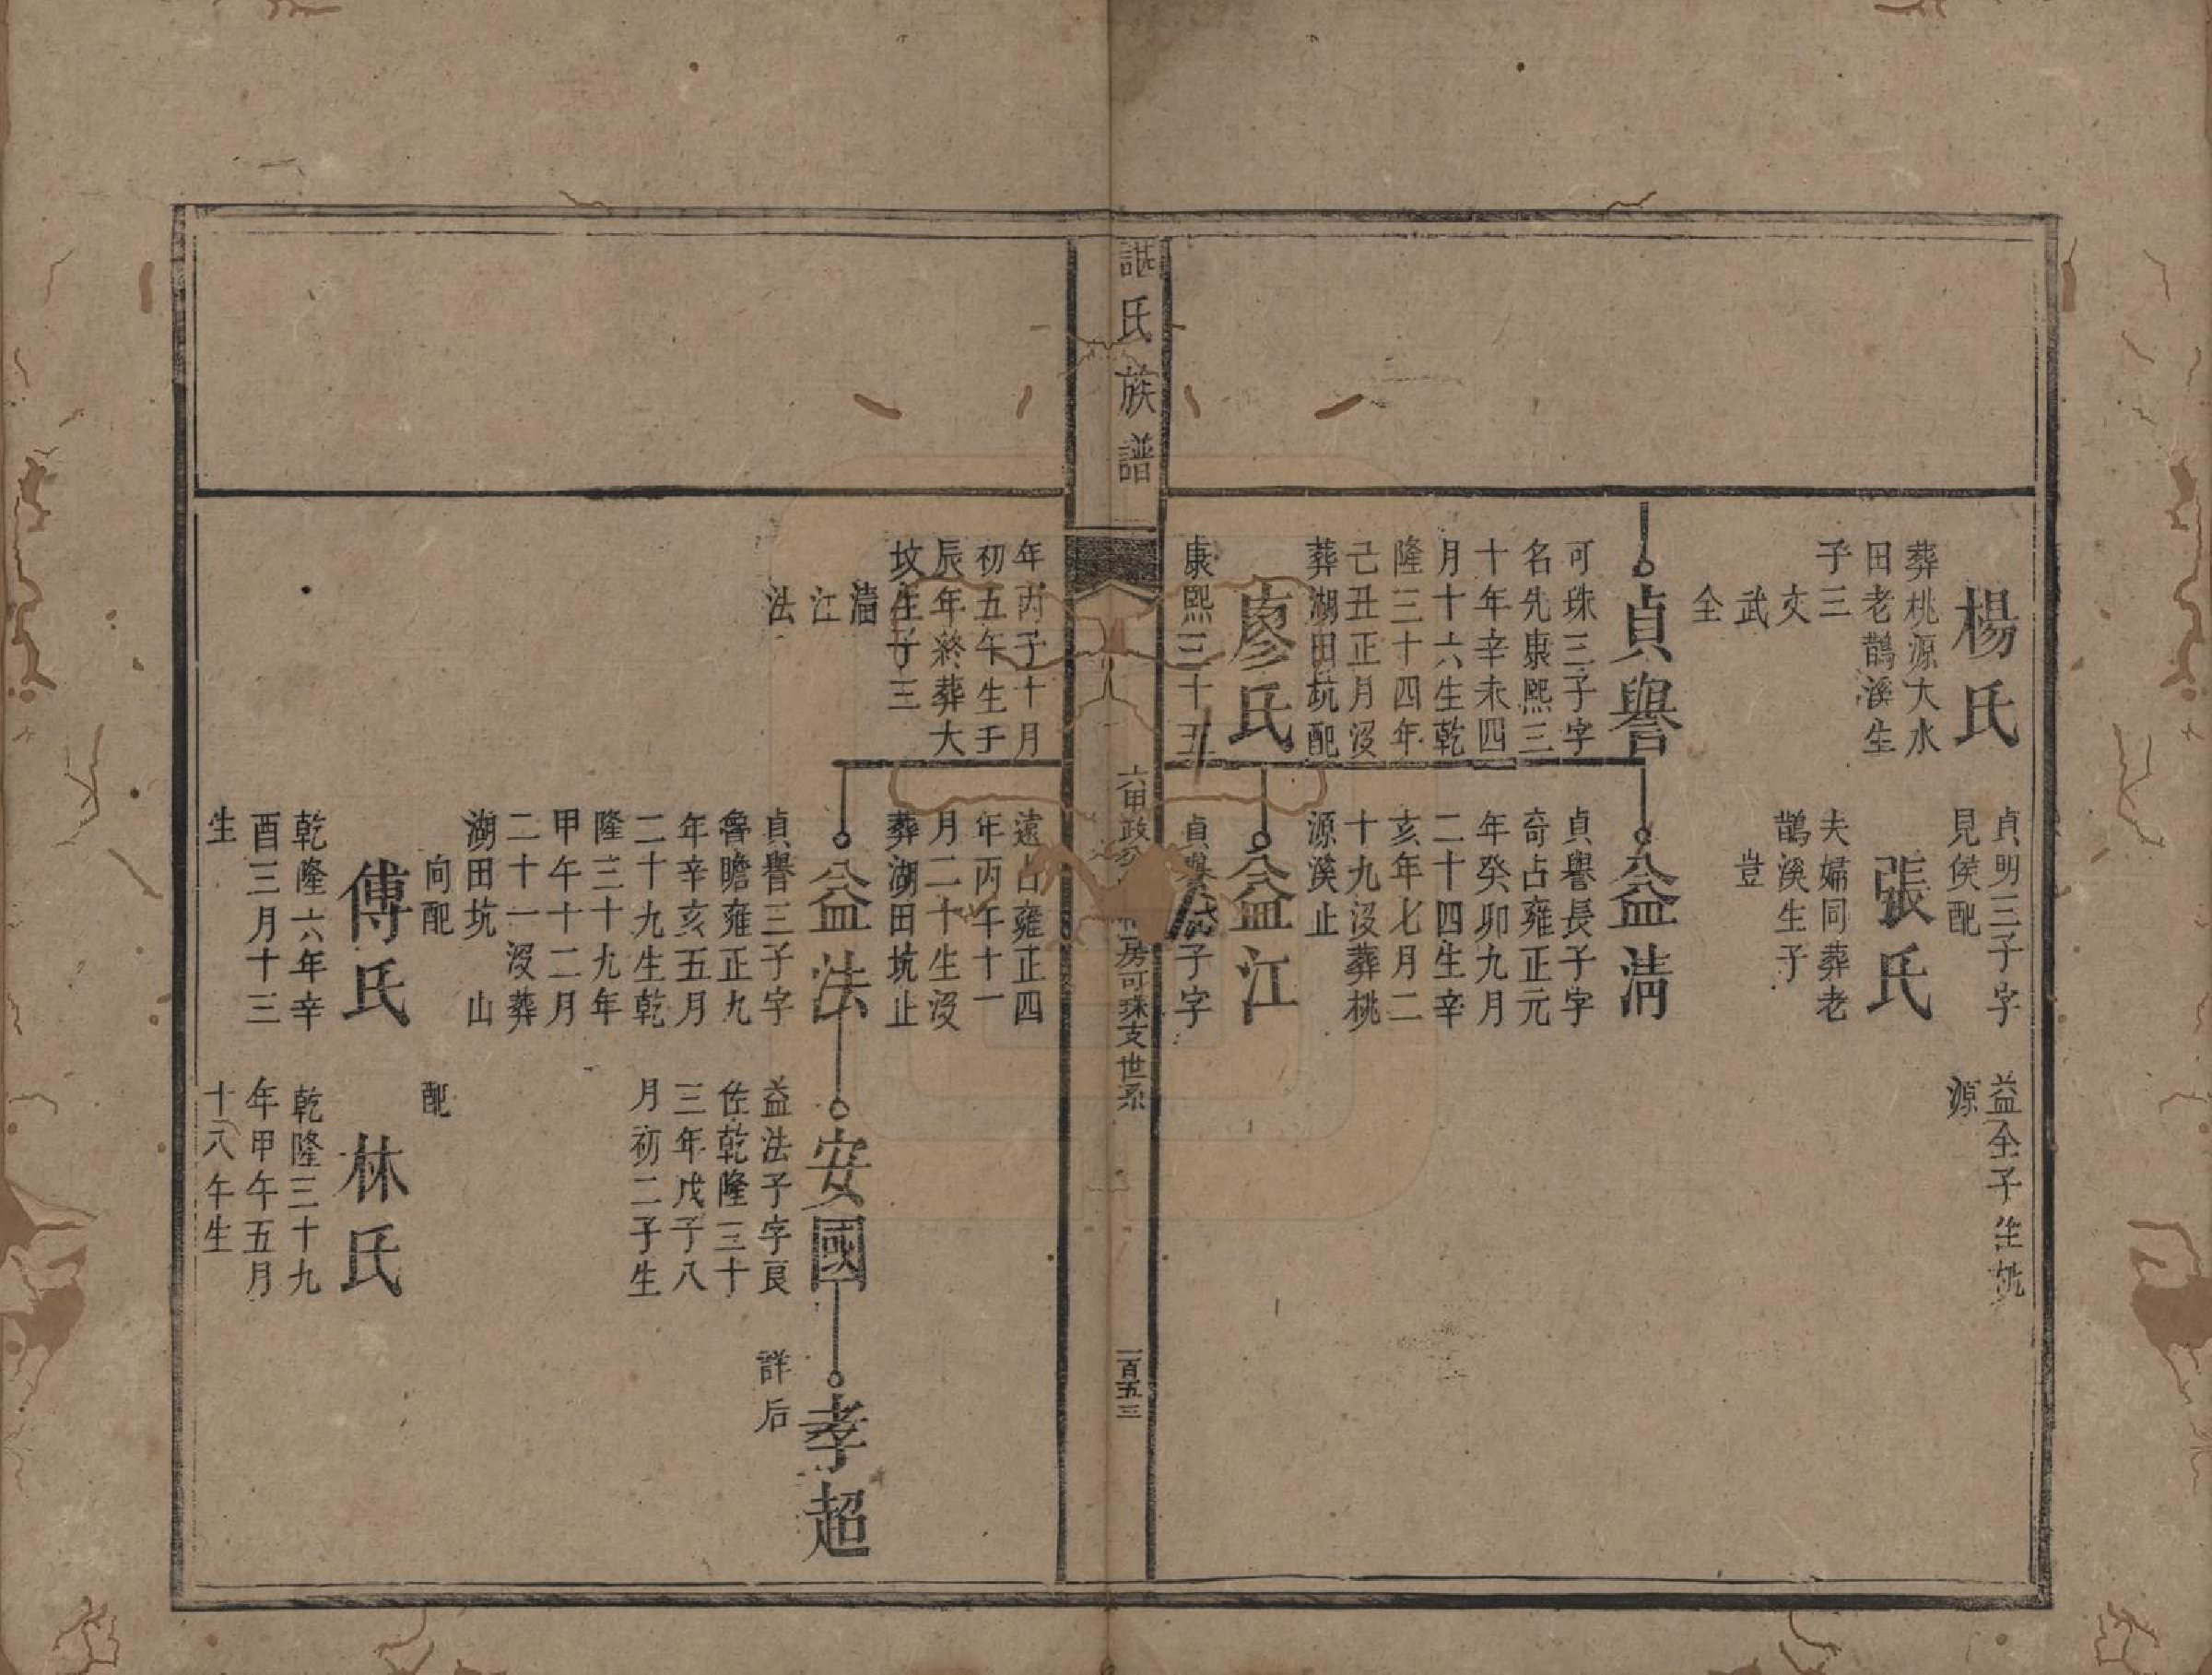 楊氏
葬桃源大水
田老鵲溪生
子三
文
武
全
貞譽
可珠三子字
名先康熙三
十年辛未四
月十六生乾
隆三十四年
己丑正月沒
葬湖田坑配
廖氏
康熙三十五
貞明三子字
見侯配
張氏
夫婦同葬老
鵲溪生子
豈
益清
貞譽長子字
奇占雍正元
年癸卯九月
二十四生辛
亥年七月二
十九沒葬桃
源溪止
益江
貞譽次子字
益全子生坑
源
氏族譜
六甲政公
房可珠支世系
一百五三
年丙子十月
初五午生壬
辰年終葬大
坟生子三
清
江
法
遠占雍正四
年丙午十一
月二十生沒
葬湖田坑止
益法
貞譽三子字
魯瞻雍正九
年辛亥五月
二十九生乾
隆三十九年
甲午十二月
二十一沒葬
湖田坑 山
向配
傅氏
乾隆六年辛
酉三月十三
生
安國
益法子字良
佐乾隆三十
三年戊子八
月初二子生
配
林氏
乾隆三十九
年甲午五月
十八午生
孝超
詳后